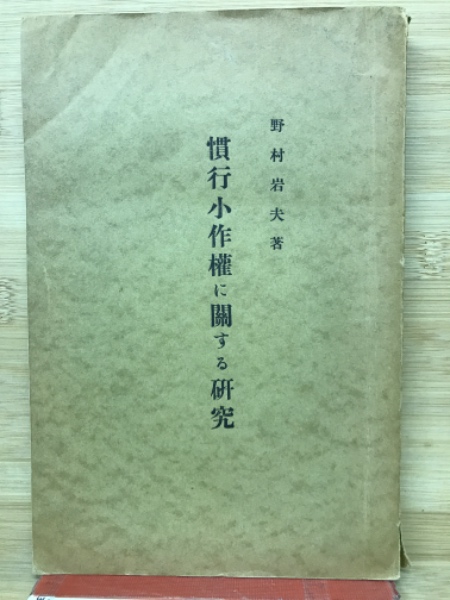 野村岩夫著
慣行小作權に關する硏究